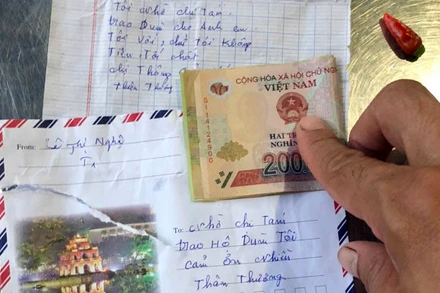 Tôi nhờ chị Tám
trao Dùm cho Anh em
Tôi với, chứ Tôi Không
Tiền Tôi
chị Thông
thiên Thông
CỘNG HÒA XÃ HỘI CHỦ NG
VIỆT NAM
HAI T
NGHÌN
200
From: Lê Thị Nghệ
To: nhờ chị Tám
trao Hộ Dùm Tôi
cảm ơn Nhiều
Thân Thương